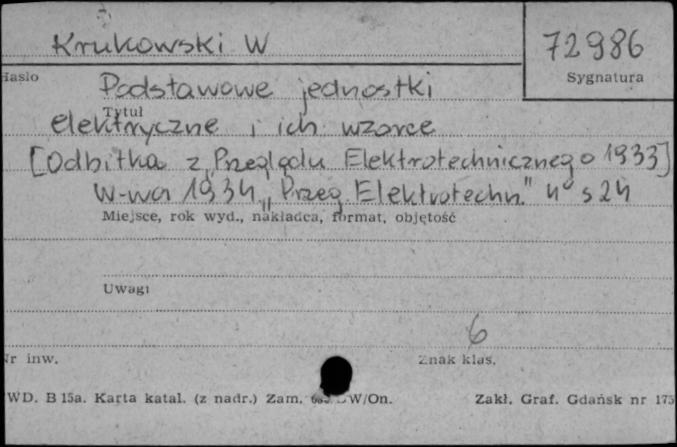 Krukowski W
72986
Hasło
Sygnatura
Podstawowe jednostki
Tytuł
elektryczne i ich wzorce
[Odbitka z „Przeglądu Elektrotechnicznego 1933]
W-wa 1934 „Przeg. Elektrotechn." 4° s 24
Miejsce, rok wyd., nakładca, format, objętość
Uwagi
6
Nr inw.
Znak klas.
WD. B 15a. Karta katal. (z nadr.) Zam. W/On.
Zakł. Graf. Gdańsk nr 175